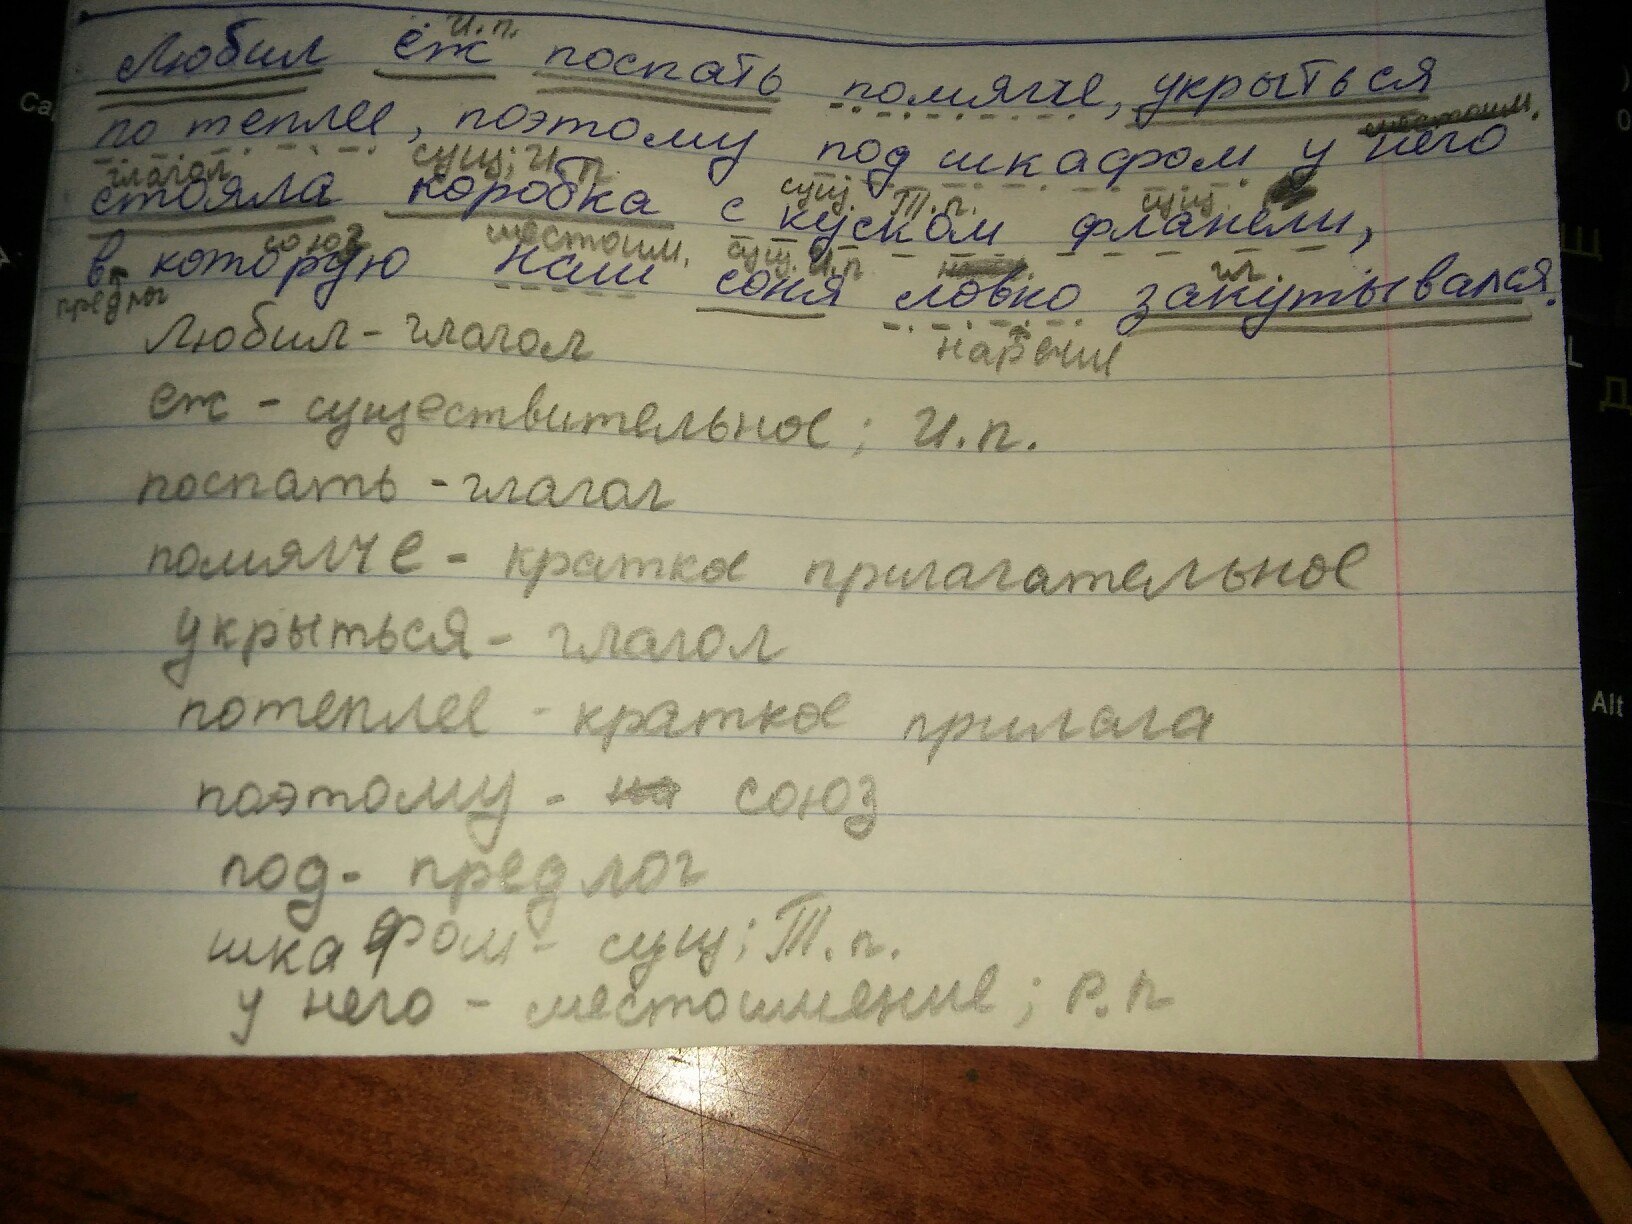 и.п.
Любил ёж поспать помягче, укрыться
потеплее, поэтому под шкафом у него
глагол сущ; И.п. сущ. Т.п. сущ.
стояла коробка с куском фланели,
союз местоим. сущ. И.п гл.
в которую наш соня ловко закутывался.
предлог наречие
Любил - глагол
еж - существительное; И.п.
поспать - глагол
помягче - краткое прилагательное
укрыться - глагол
потеплее - краткое прилага
поэтому - союз
под - предлог
шкафом - сущ; Т.п.
у него - местоимение; Р.п
Alt